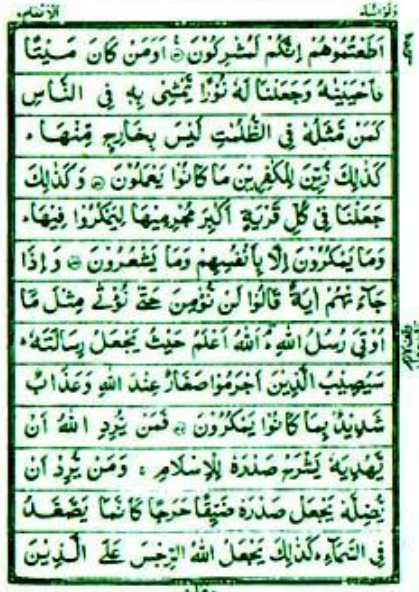 الانعام
ولواننا
اَطَعْتُمُوْهُمْ اِنَّكُمْ لَمُشْرِكُوْنَ اَوَمَنْ كَانَ مَيْتًا
فَاَحْيَيْنٰهُ وَجَعَلْنَا لَهٗ نُوْرًا يَّمْشِیْ بِهٖ فِی النَّاسِ
كَمَنْ مَّثَلُهٗ فِی الظُّلُمٰتِ لَيْسَ بِخَارِجٍ مِّنْهَا
كَذٰلِكَ زُيِّنَ لِلْكٰفِرِيْنَ مَا كَانُوْا يَعْمَلُوْنَ وَكَذٰلِكَ
جَعَلْنَا فِیْ كُلِّ قَرْيَةٍ اَكٰبِرَ مُجْرِمِيْهَا لِيَمْكُرُوْا فِيْهَا
وَمَا يَمْكُرُوْنَ اِلَّا بِاَنْفُسِهِمْ وَمَا يَشْعُرُوْنَ وَاِذَا
جَآءَتْهُمْ اٰيَةٌ قَالُوْا لَنْ نُّؤْمِنَ حَتّٰی نُؤْتٰی مِثْلَ مَآ
اُوْتِیَ رُسُلُ اللّٰهِ اَللّٰهُ اَعْلَمُ حَيْثُ يَجْعَلُ رِسَالَتَهٗ
سَيُصِيْبُ الَّذِيْنَ اَجْرَمُوْا صَغَارٌ عِنْدَ اللّٰهِ وَعَذَابٌ
شَدِيْدٌۢ بِمَا كَانُوْا يَمْكُرُوْنَ فَمَنْ يُّرِدِ اللّٰهُ اَنْ
يَّهْدِيَهٗ يَشْرَحْ صَدْرَهٗ لِلْاِسْلَامِ وَمَنْ يُّرِدْ اَنْ
يُّضِلَّهٗ يَجْعَلْ صَدْرَهٗ ضَيِّقًا حَرَجًا كَاَنَّمَا يَصَّعَّدُ
فِی السَّمَآءِ كَذٰلِكَ يَجْعَلُ اللّٰهُ الرِّجْسَ عَلَی الَّذِيْنَ